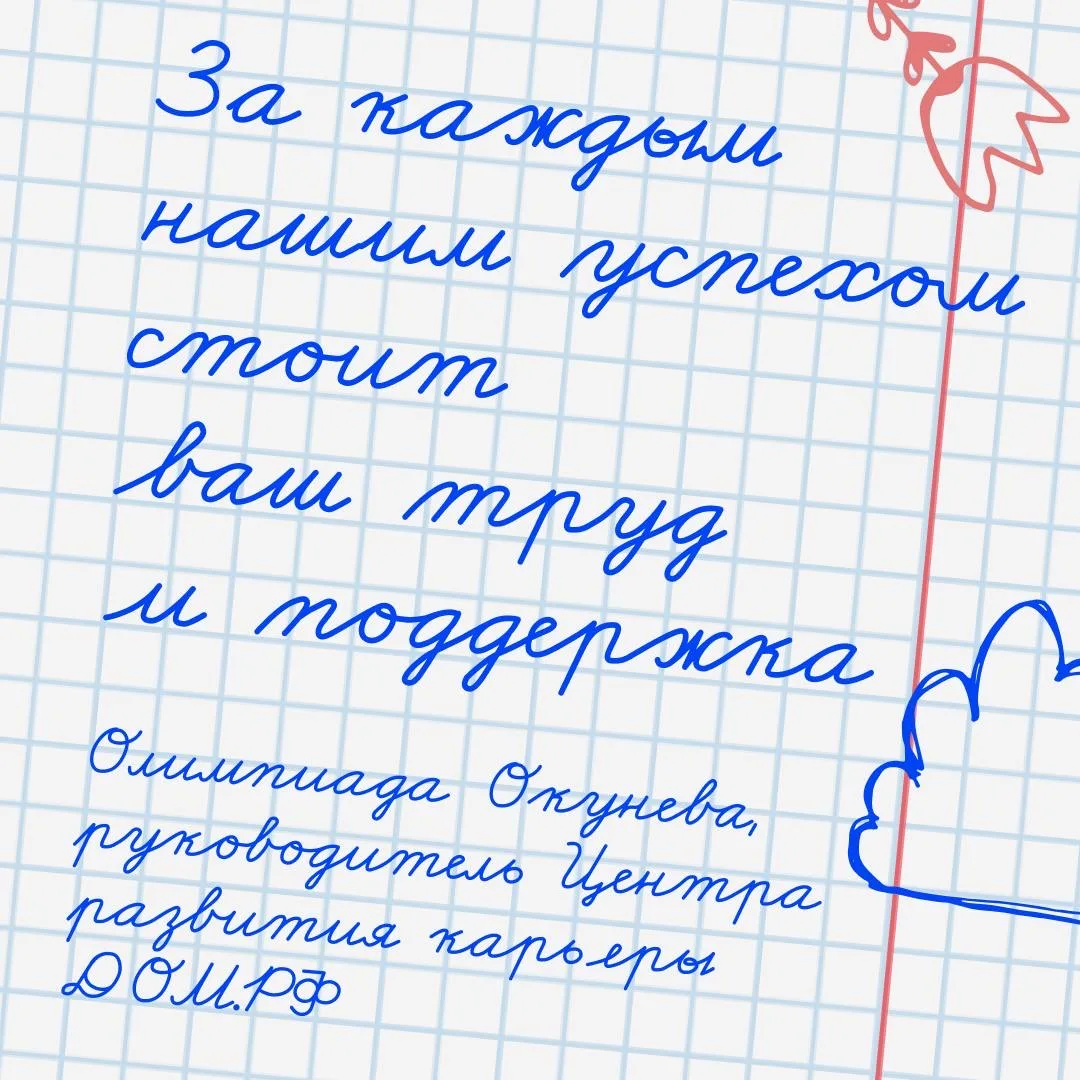 За каждым
нашим успехом
стоит
ваш труд
и поддержка
Олимпиада Окунева,
руководитель Центра
развития карьеры
ДОМ.РФ